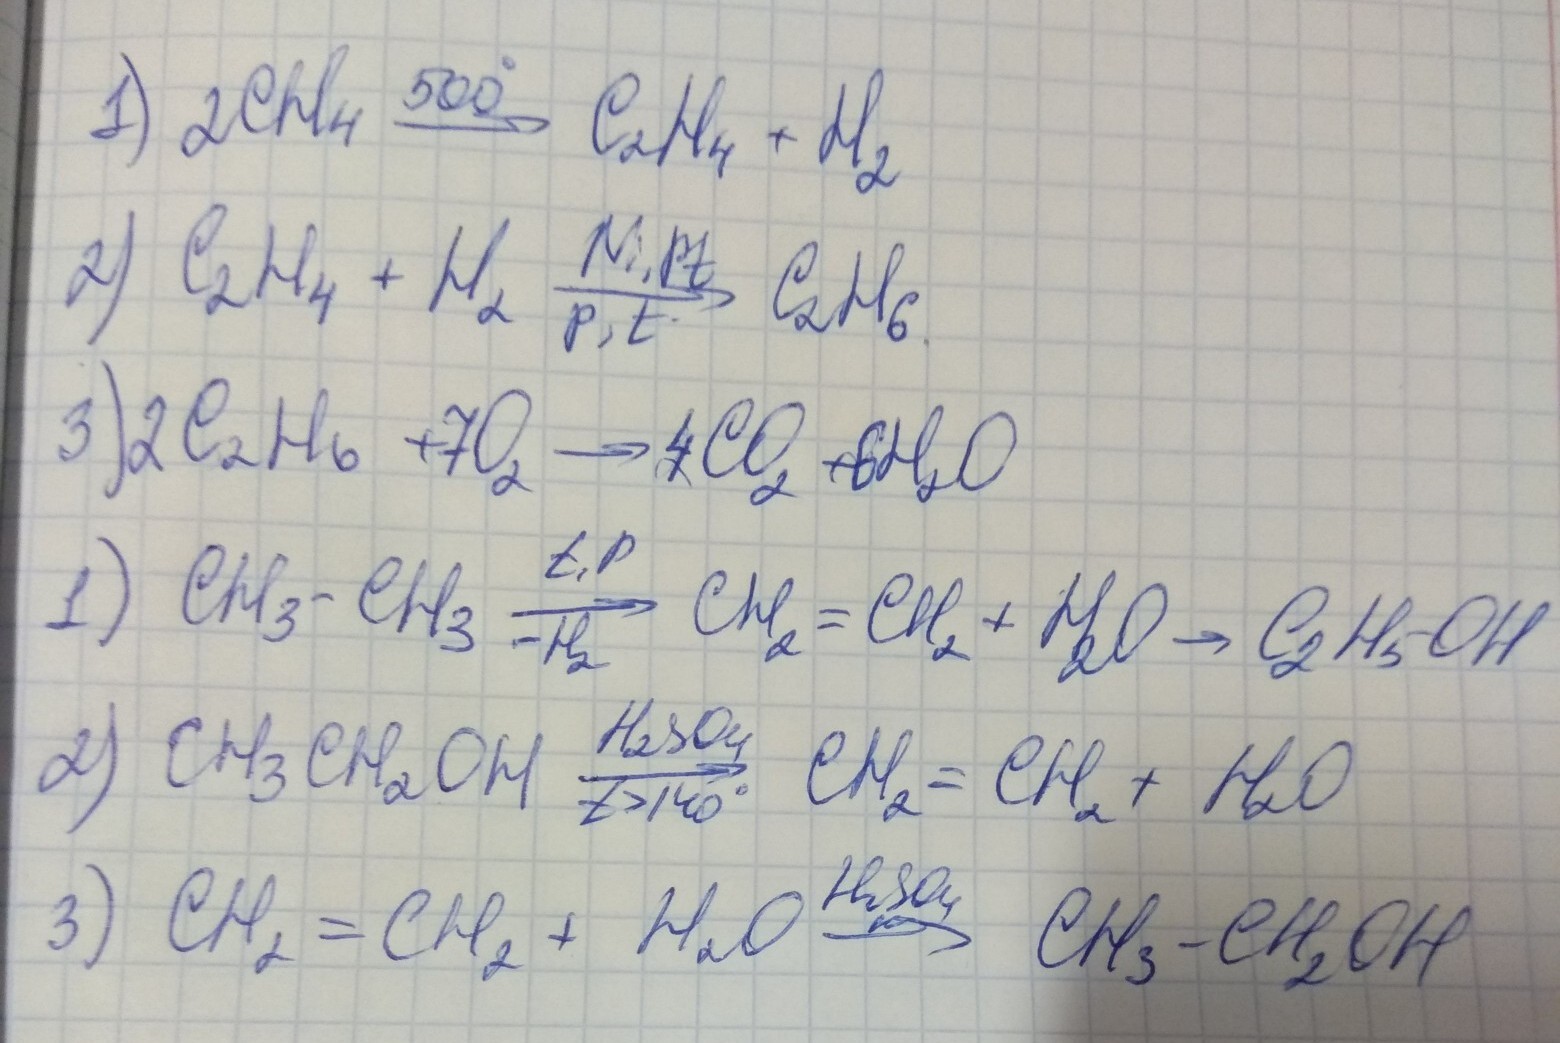 1) 2CH₄ 500° → C₂H₄ + H₂
2) C₂H₄ + H₂ Ni, Pt → p, t C₂H₆
3) 2C₂H₆ + 7O₂ → 4CO₂ + 6H₂O
1) CH₃ - CH₃ t, p → -H₂ CH₂ = CH₂ + H₂O → C₂H₅-OH
2) CH₃CH₂OH H₂SO₄ → t>140° CH₂ = CH₂ + H₂O
3) CH₂ = CH₂ + H₂O H₂SO₄ → CH₃ - CH₂OH